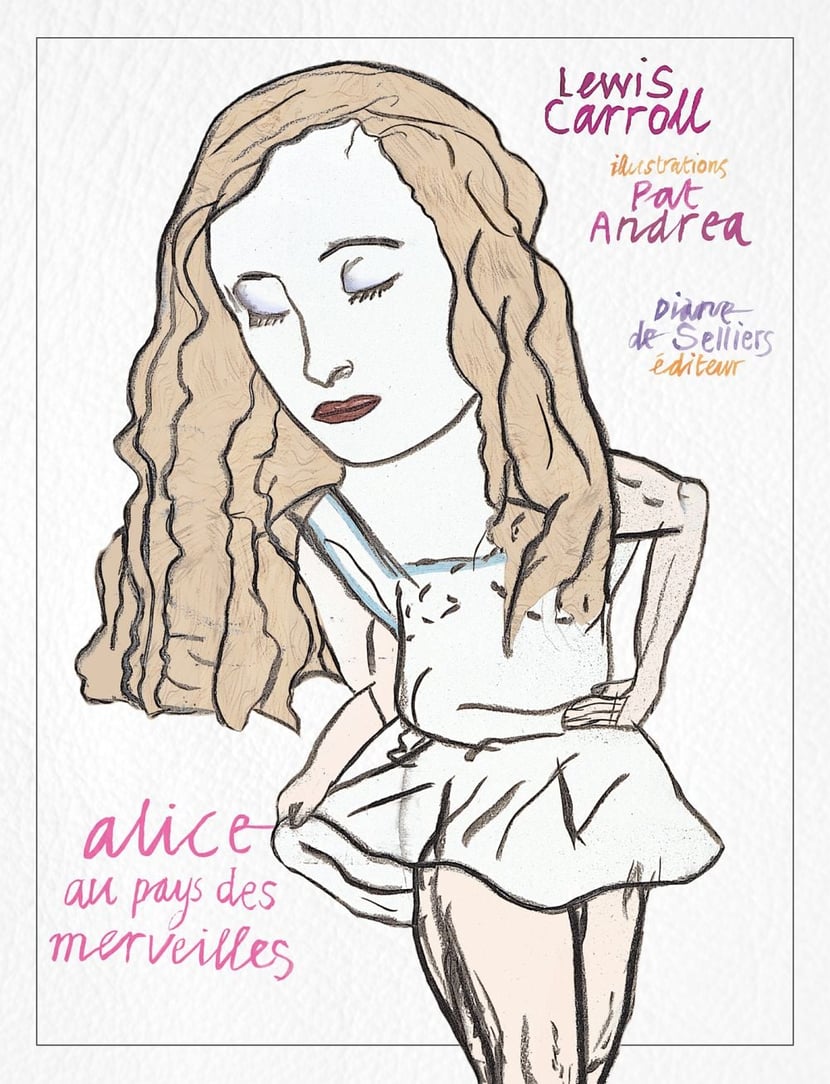 Lewis
Carroll
illustrations
Pat
Andrea
Diane
de Selliers
éditeur
alice
au pays des
merveilles